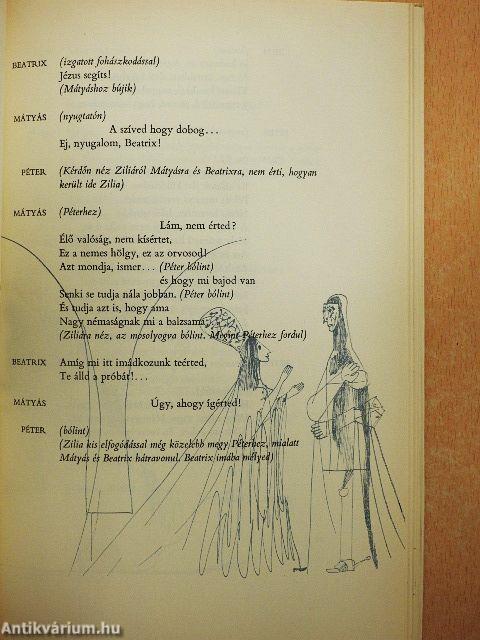 BEATRIX (izgatott fohászkodással)
Jézus segíts!
(Mátyáshoz bújik)
MÁTYÁS (nyugtatón)
A szíved hogy dobog...
Ej, nyugalom, Beatrix!
PÉTER (Kérdőn néz Ziliáról Mátyásra és Beatrixra, nem érti, hogyan
került ide Zilia)
MÁTYÁS (Péterhez)
Lám, nem érted?
Élő valóság, nem kísértet,
Ez a nemes hölgy, ez az orvosod!
Azt mondja, ismer... (Péter bólint)
és hogy mi bajod van
Senki se tudja nála jobban. (Péter bólint)
És tudja azt is, hogy ama
Nagy némaságnak mi a balzsama.
(Ziliára néz, az mosolyogva bólint. Megint Péterhez fordul)
BEATRIX Amíg mi itt imádkozunk teérted,
Te álld a próbát!...
MÁTYÁS Úgy, ahogy ígérted!
PÉTER (bólint)
(Zilia kis elfogódással még közelebb megy Péterhez, mialatt
Mátyás és Beatrix hátravonul. Beatrix imába mélyed)
Antikvárium.hu